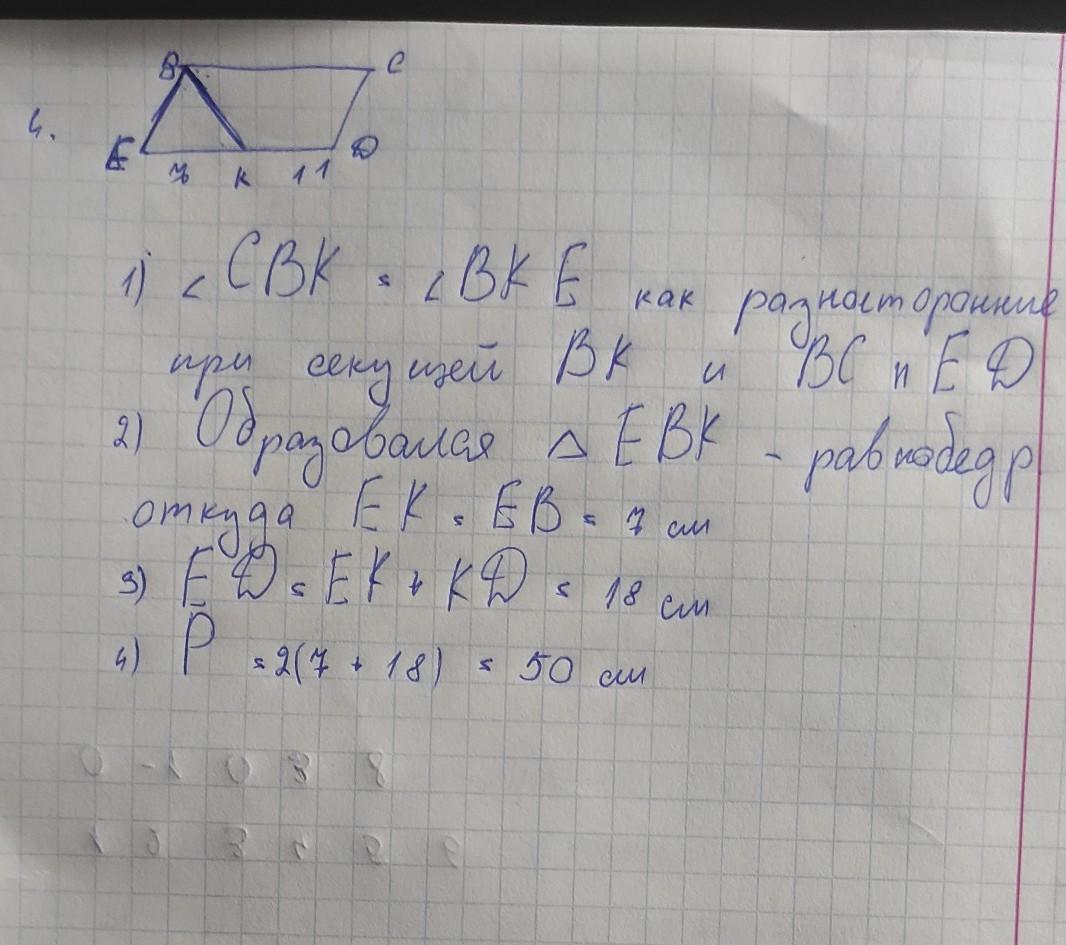 B C
4.
E 7 K 11 D
1) ∠CBK = ∠BKE как разносторонние
при секущей BK и BC и ED
2) Образовался △EBK - равнобедр
откуда EK = EB = 7 см
3) ED = EK + KD = 18 см
4) P = 2(7 + 18) = 50 см